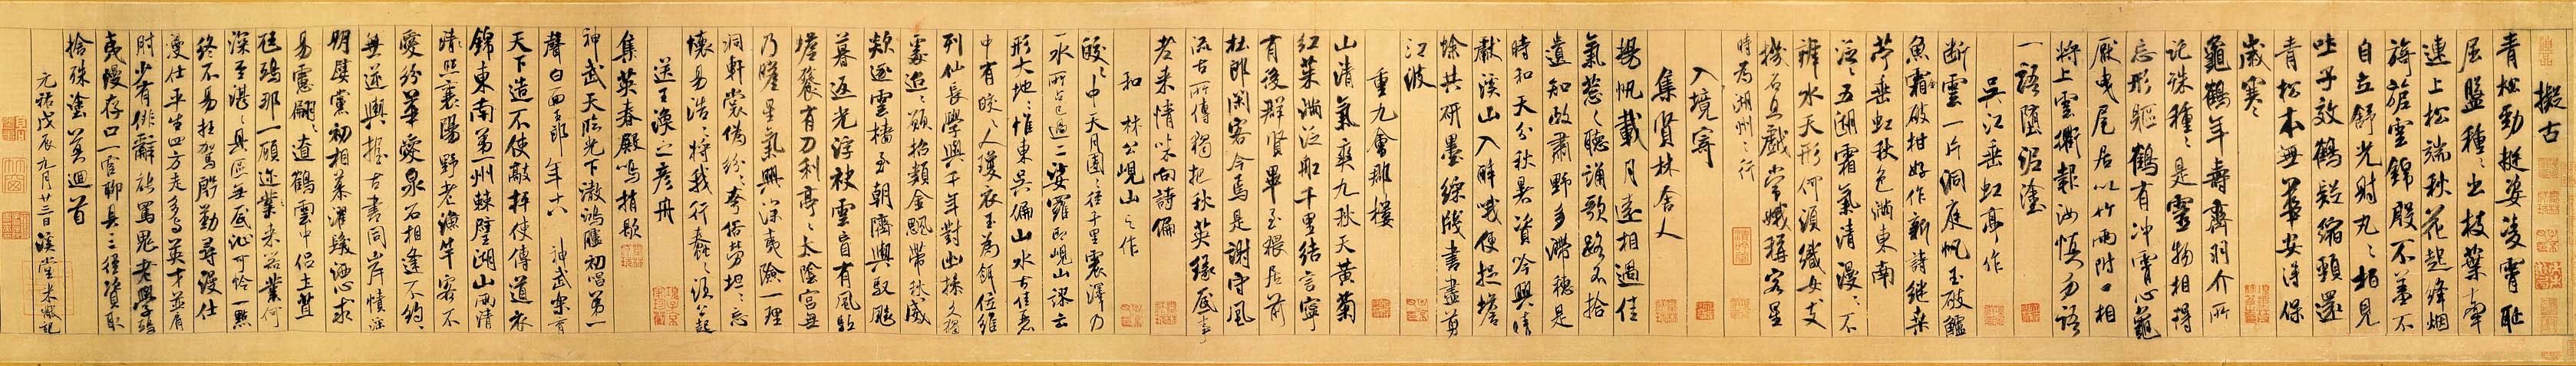 擬古
青松勁挺姿凌霄恥
屈盤種〻出枝葉牽
連上松端秋花起絳烟
旖旎雲錦殷不羞不
自立舒光射丸〻柏見
吐子效鶴疑縮頸還
青松本無華安得保
歲寒〻
龜鶴年壽齊羽介所
託殊種〻是靈物相得
忘形軀鶴有冲霄心龜
厭曳尾居以竹兩附口相
將上雲衢報汝慎勿語
一語墮泥塗
吳江垂虹亭作
断雲一片洞庭帆玉破鱸
魚霜破柑好作新詩繼桑
苧垂虹秋色滿東南
泛〻五湖霜氣清漫〻不
辨水天形何須織女支
機石且戲常娥稱客星
時為湖州之行
入境寄
集賢林舍人
揚帆載月遠相過佳
氣蔥〻聽誦歌路不拾
遺知政肅野多滯穗是
時和天分秋暑資吟興晴
獻溪山入醉哦便捉蟾
蜍共研墨綵牋書盡剪
江波
重九會郡樓
山清氣爽九秋天黃菊
紅茱滿泛船千里結言寧
有後群賢畢至猥居前
杜郎閑客今焉是謝守風
流古所傳獨把秋英緣底事
老來情味向詩偏
和 林公峴山之作
皎〻中天月團〻徑千里震澤乃
一水所占已過二娑羅即峴山謬云
形大地〻惟東吳偏山水古佳麗
中有皎〻人瓊衣玉為餌位維
列仙長學與千年對幽操久獨
處迢〻願招類金颸帶秋威
欻逐雲檣至朝隮輿馭飈
暮返光浮袂雲盲有風驅
蟾餮有刀利亭〻太陰宮無
乃瞻星氣興深夷險一理
洞軒裳偽紛〻夸俗勞坦〻忘
懷易浩〻將我行蠢〻須公起
送王渙之彥舟
集英春殿鳴捎歇
神武天臨光下澈鴻臚初唱第一
聲白面玉郎年十八 神武樂育
天下造不使敲枰使傳道衣
錦東南第一州棘璧湖山兩清
照襄陽野老漁竿客不
愛紛華愛泉石相逢不約〻
無逆輿握古書同岸幘淫
朋嬖黨初相慕濯髮洒心求
易慮翩〻遼鶴雲中侶土苴
尪鴟那一顧邇來器業何
深至湛〻具區無底沚可憐一點
終不易枉駕殷勤尋漫仕
漫仕平生四方走多與英才並肩
肘少有俳辭能罵鬼老學鴟
夷漫存口一官聊具三徑資取
捨殊塗莫迴首
元祐戊辰九月廿三日溪堂米黻記